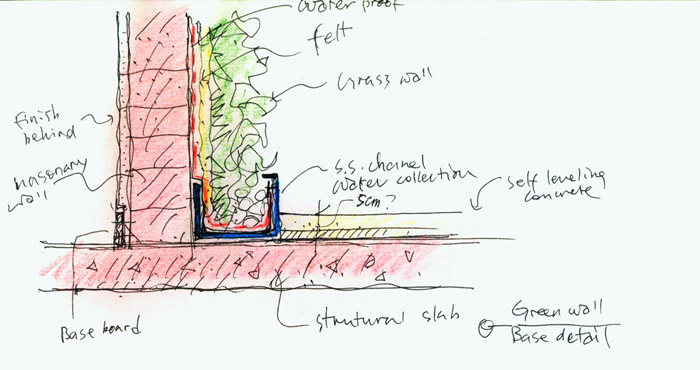 water proof
felt
Grass wall
finish
behind
masonary
wall
s.s. channel
water collection
5cm?
self leveling
concrete
Base board
strutural slab
Green wall
Base detail